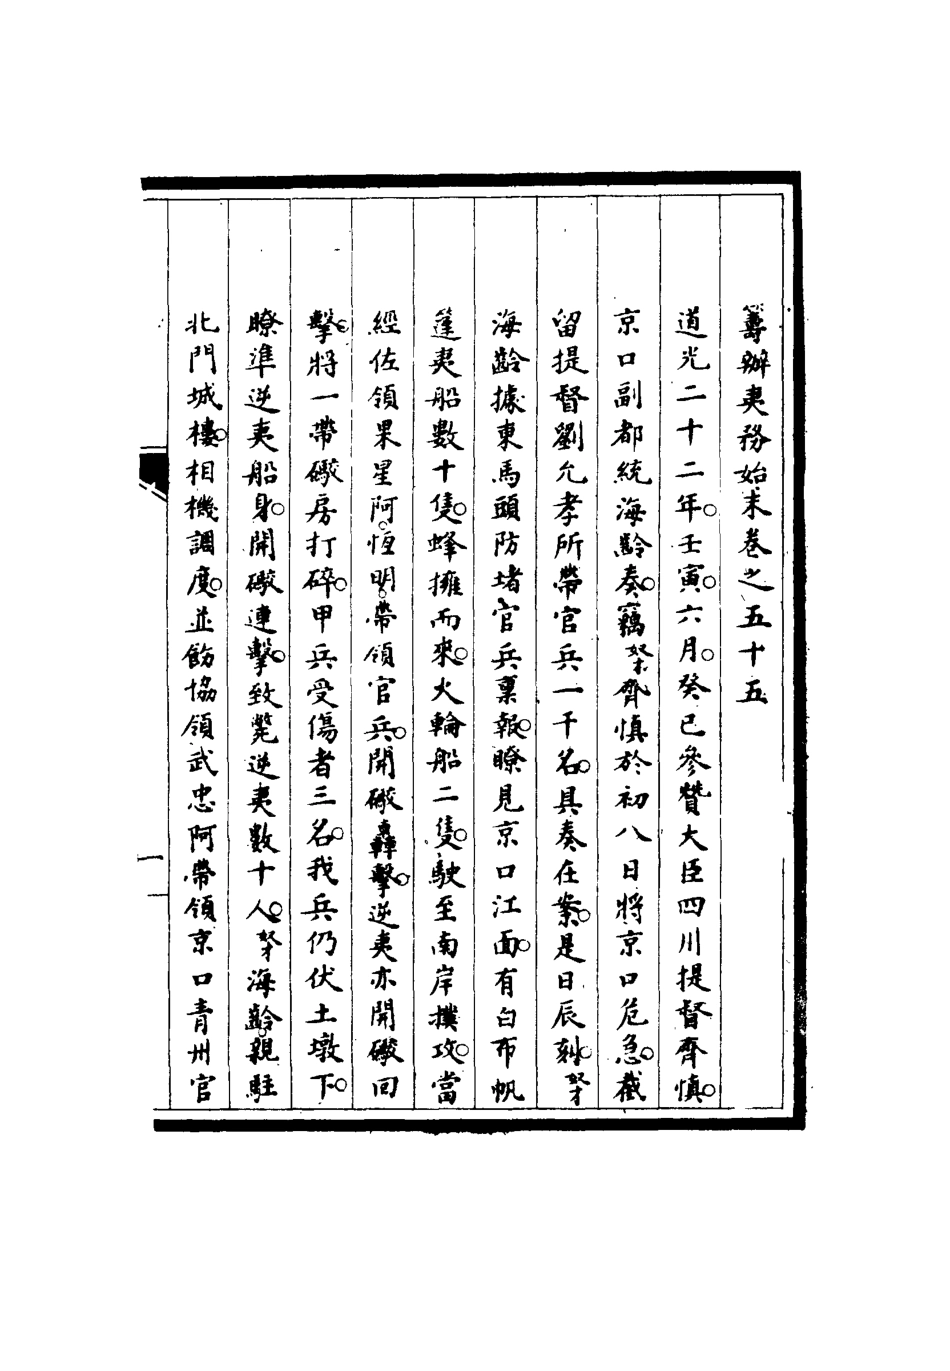 籌辦夷務始末卷之五十五
道光二十二年。壬寅。六月。癸巳參贊大臣四川提督齊慎。
京口副都統海齡奏。竊奴才齊慎於初八日將京口危急。截
留提督劉允孝所帶官兵一千名。具奏在案。是日辰刻。奴才
海齡據東馬頭防堵官兵稟報。瞭見京口江面。有白布帆
篷夷船數十隻。蜂擁而來。火輪船二隻。駛至南岸撲攻。當
經佐領果星阿。恆明。帶領官兵。開礮轟擊。逆夷亦開礮回
擊。將一帶礮房打碎。甲兵受傷者三名。我兵仍伏土墩下。
瞭準逆夷船身。開礮連擊。致斃逆夷數十人。奴才海齡。親駐
北門城樓。相機調度。並飭協領武忠阿帶領京口青州官
一